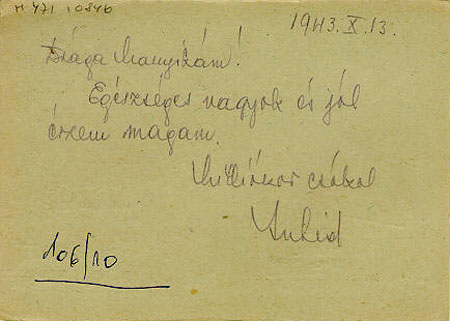 H 471 10846
1943. X. 13.
Drága Manyikám!
Egészséges vagyok és jól
érzem magam.
Milliószor csókol
106/10